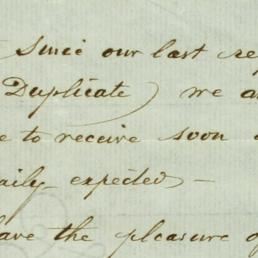 Since our last re
Duplicate) we a
e to receive soon
aily expected—
ave the pleasure of